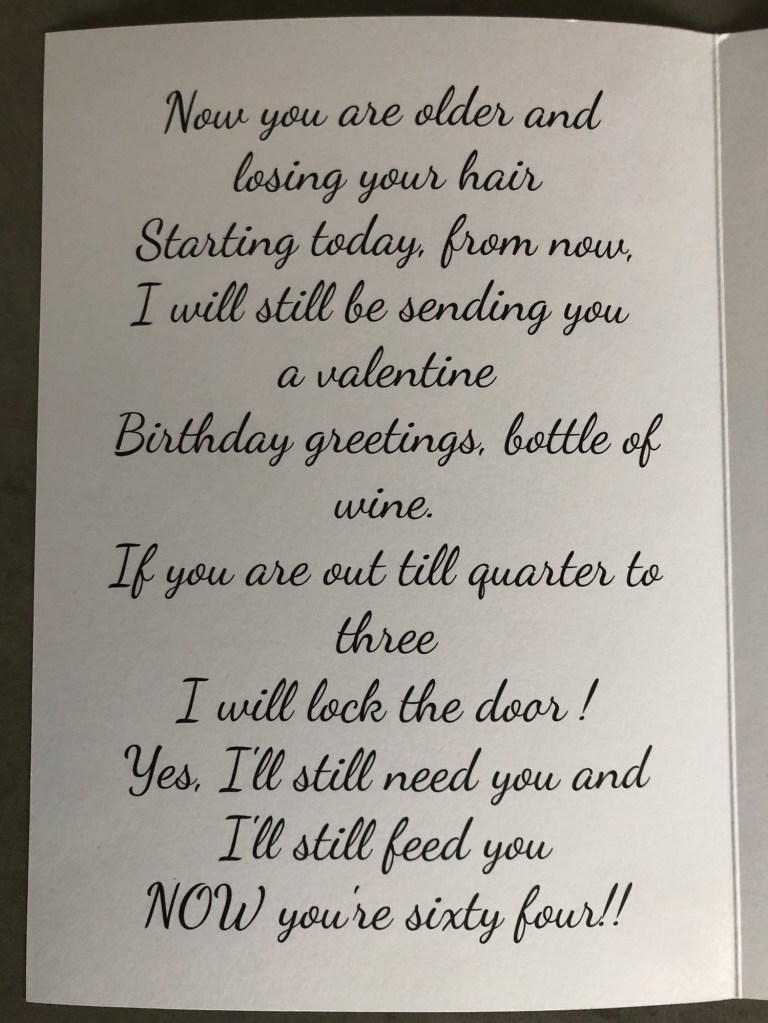 Now you are older and
losing your hair
Starting today, from now,
I will still be sending you
a valentine
Birthday greetings, bottle of
wine.
If you are out till quarter to
three
I will lock the door !
Yes, I'll still need you and
I'll still feed you
NOW you're sixty four!!